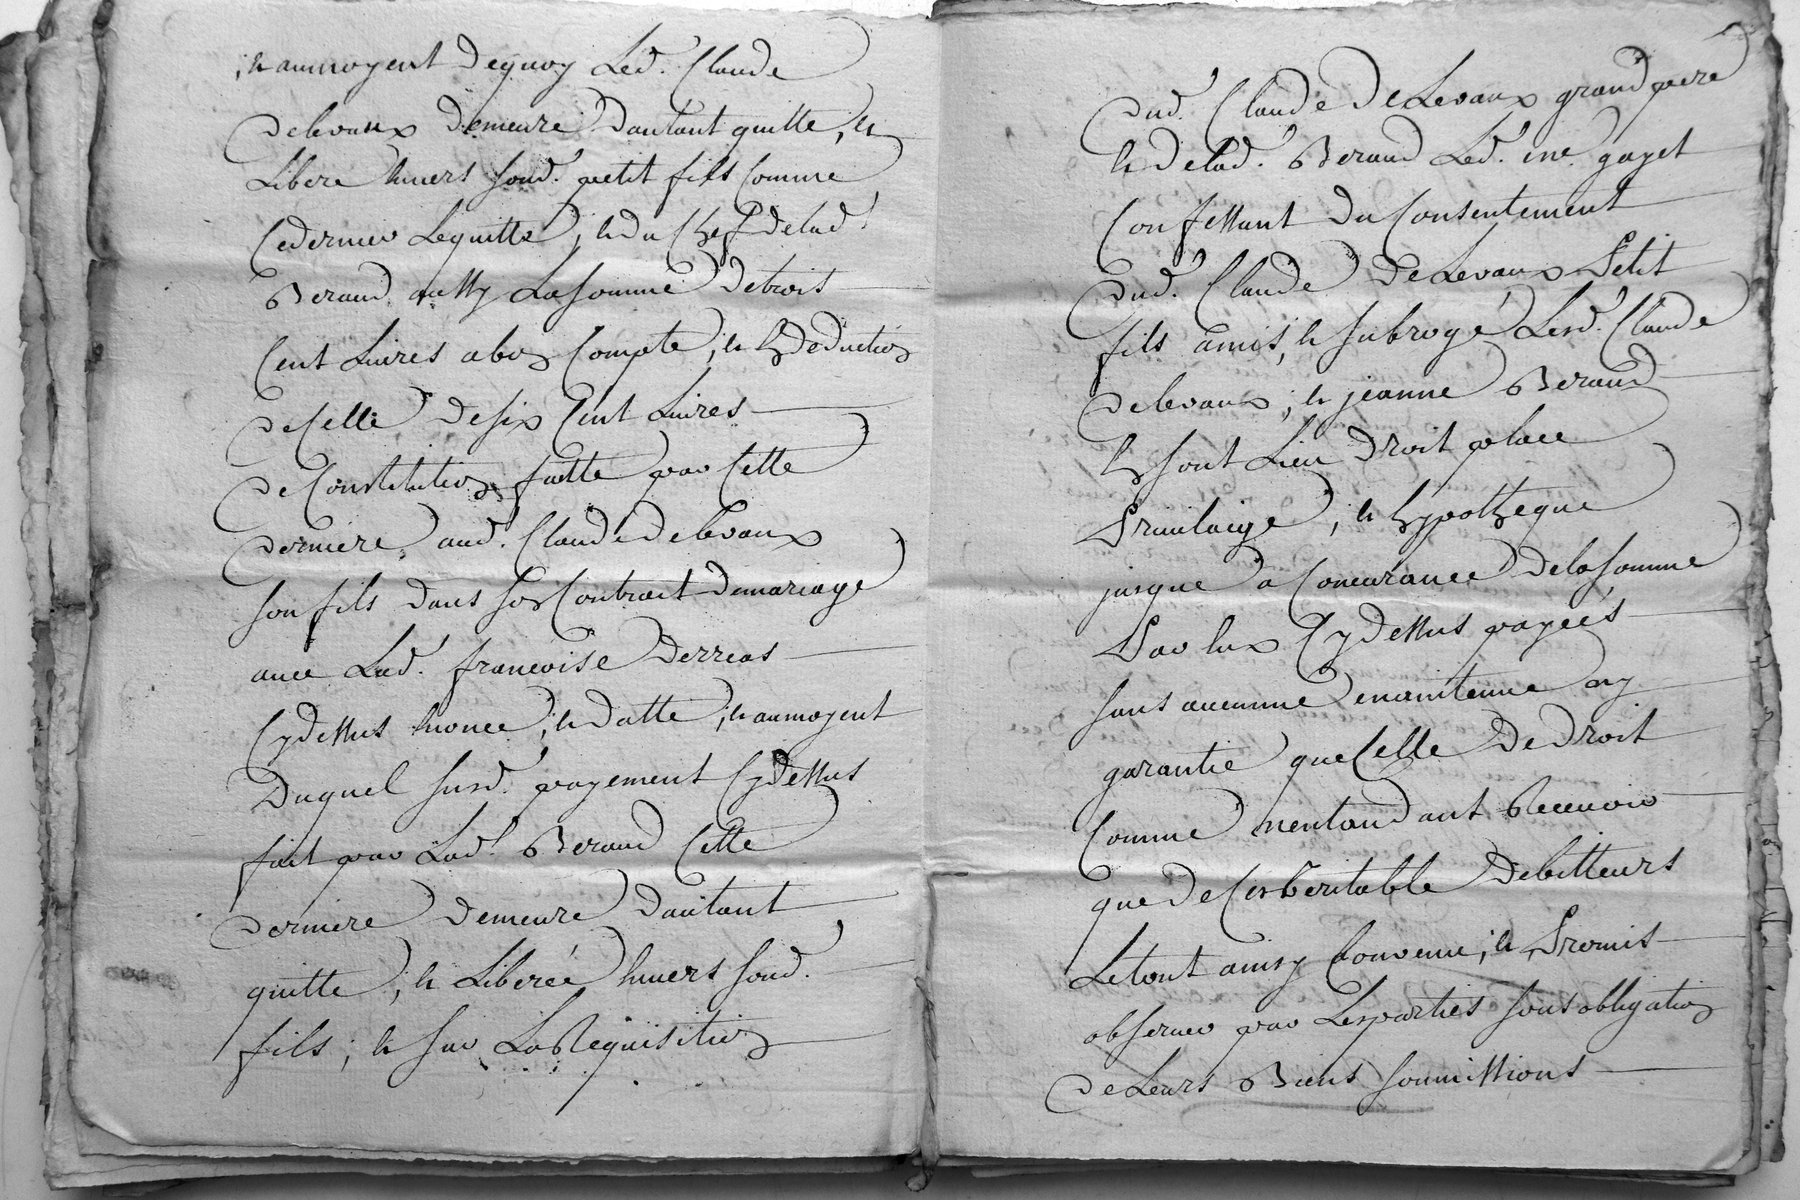 ; et aumoyent dequoy Led. Claude
delevaux demeure dautant quitte, et
Libere Envers sond. petit fils Comme
Cedernier Lequitte, et du Chef delad.
Beraud aussy La somme detrois
Cent Livres abon Compte, et En deduction
de Celle de six Cent Livres
de Constitution faitte par Cette
derniere, aud. Claude delevaux
son fils dans son Contrait demariage
avec Lad. francoise Derreas
Cydessus Enoncé, et datté; et aumoyent
Duquel susd. payement Cydessus
fait par Lad. Beraud Cette
derniere demeure dautant
quitte, et Liberée Envers sond.
fils; et sur La Requisition
dud. Claude deLevaux grand pere
et delad. Beraud Led. me. gayet
Confessant du Consentement
dud. Claude DeLevaux Petit
fils amis, et subrogé Lesd. Claude
delevaux, et jeanne Beraud
En sont Lieu droit place
Privilaige, et hypotheque
jusque a Concurance dela somme
Par Eux Cydessus payeés
sans aucunne maintenue ny
garantie que Celle de droit
Comme nentandant Recevoir
que de Ces Veritable debitteurs
Letout ainsy Convenu, et Promis
observer par Les parties sous obligation
de Leurs Biens soumissions